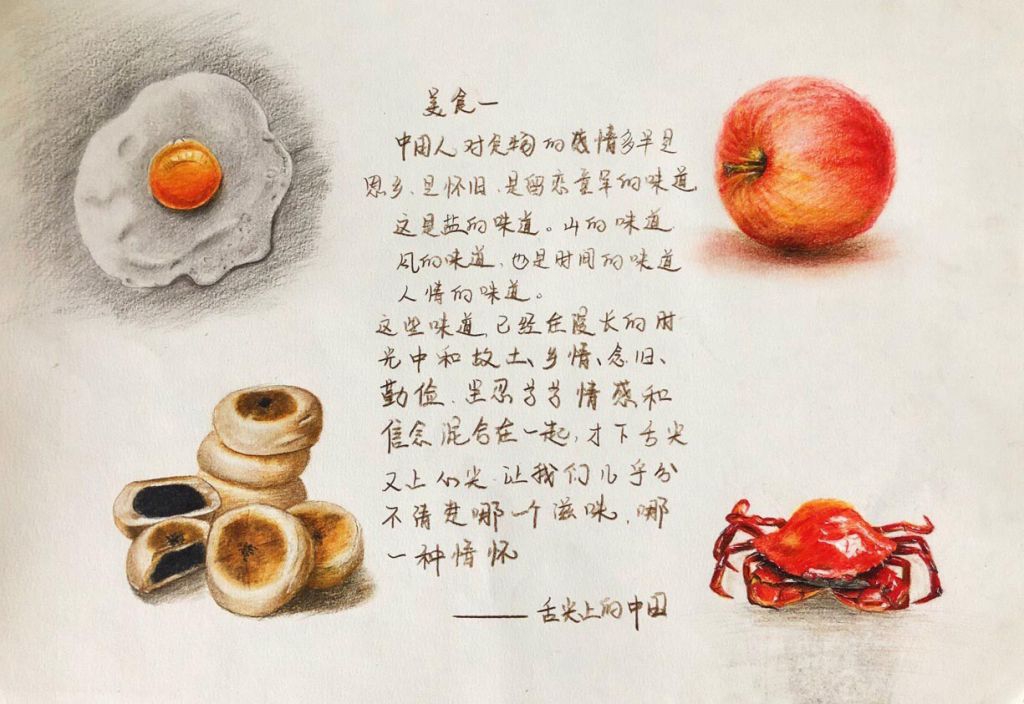 美食一
中国人对食物的感情多半是
思乡、是怀旧、是留恋童年的味道
这是盐的味道。山的味道
风的味道、也是时间的味道
人情的味道。
这些味道，已经在漫长的时
光中和故土、乡情、念旧、
勤俭、坚忍等等情感和
信念混合在一起，才下舌尖
又上心尖，让我们几乎分
不清楚哪一个滋味，哪
一种情怀
——舌尖上的中国